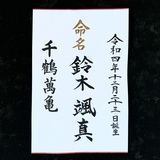 令和四年十二月二十三日誕生
命名
鈴木颯真
千鶴萬亀